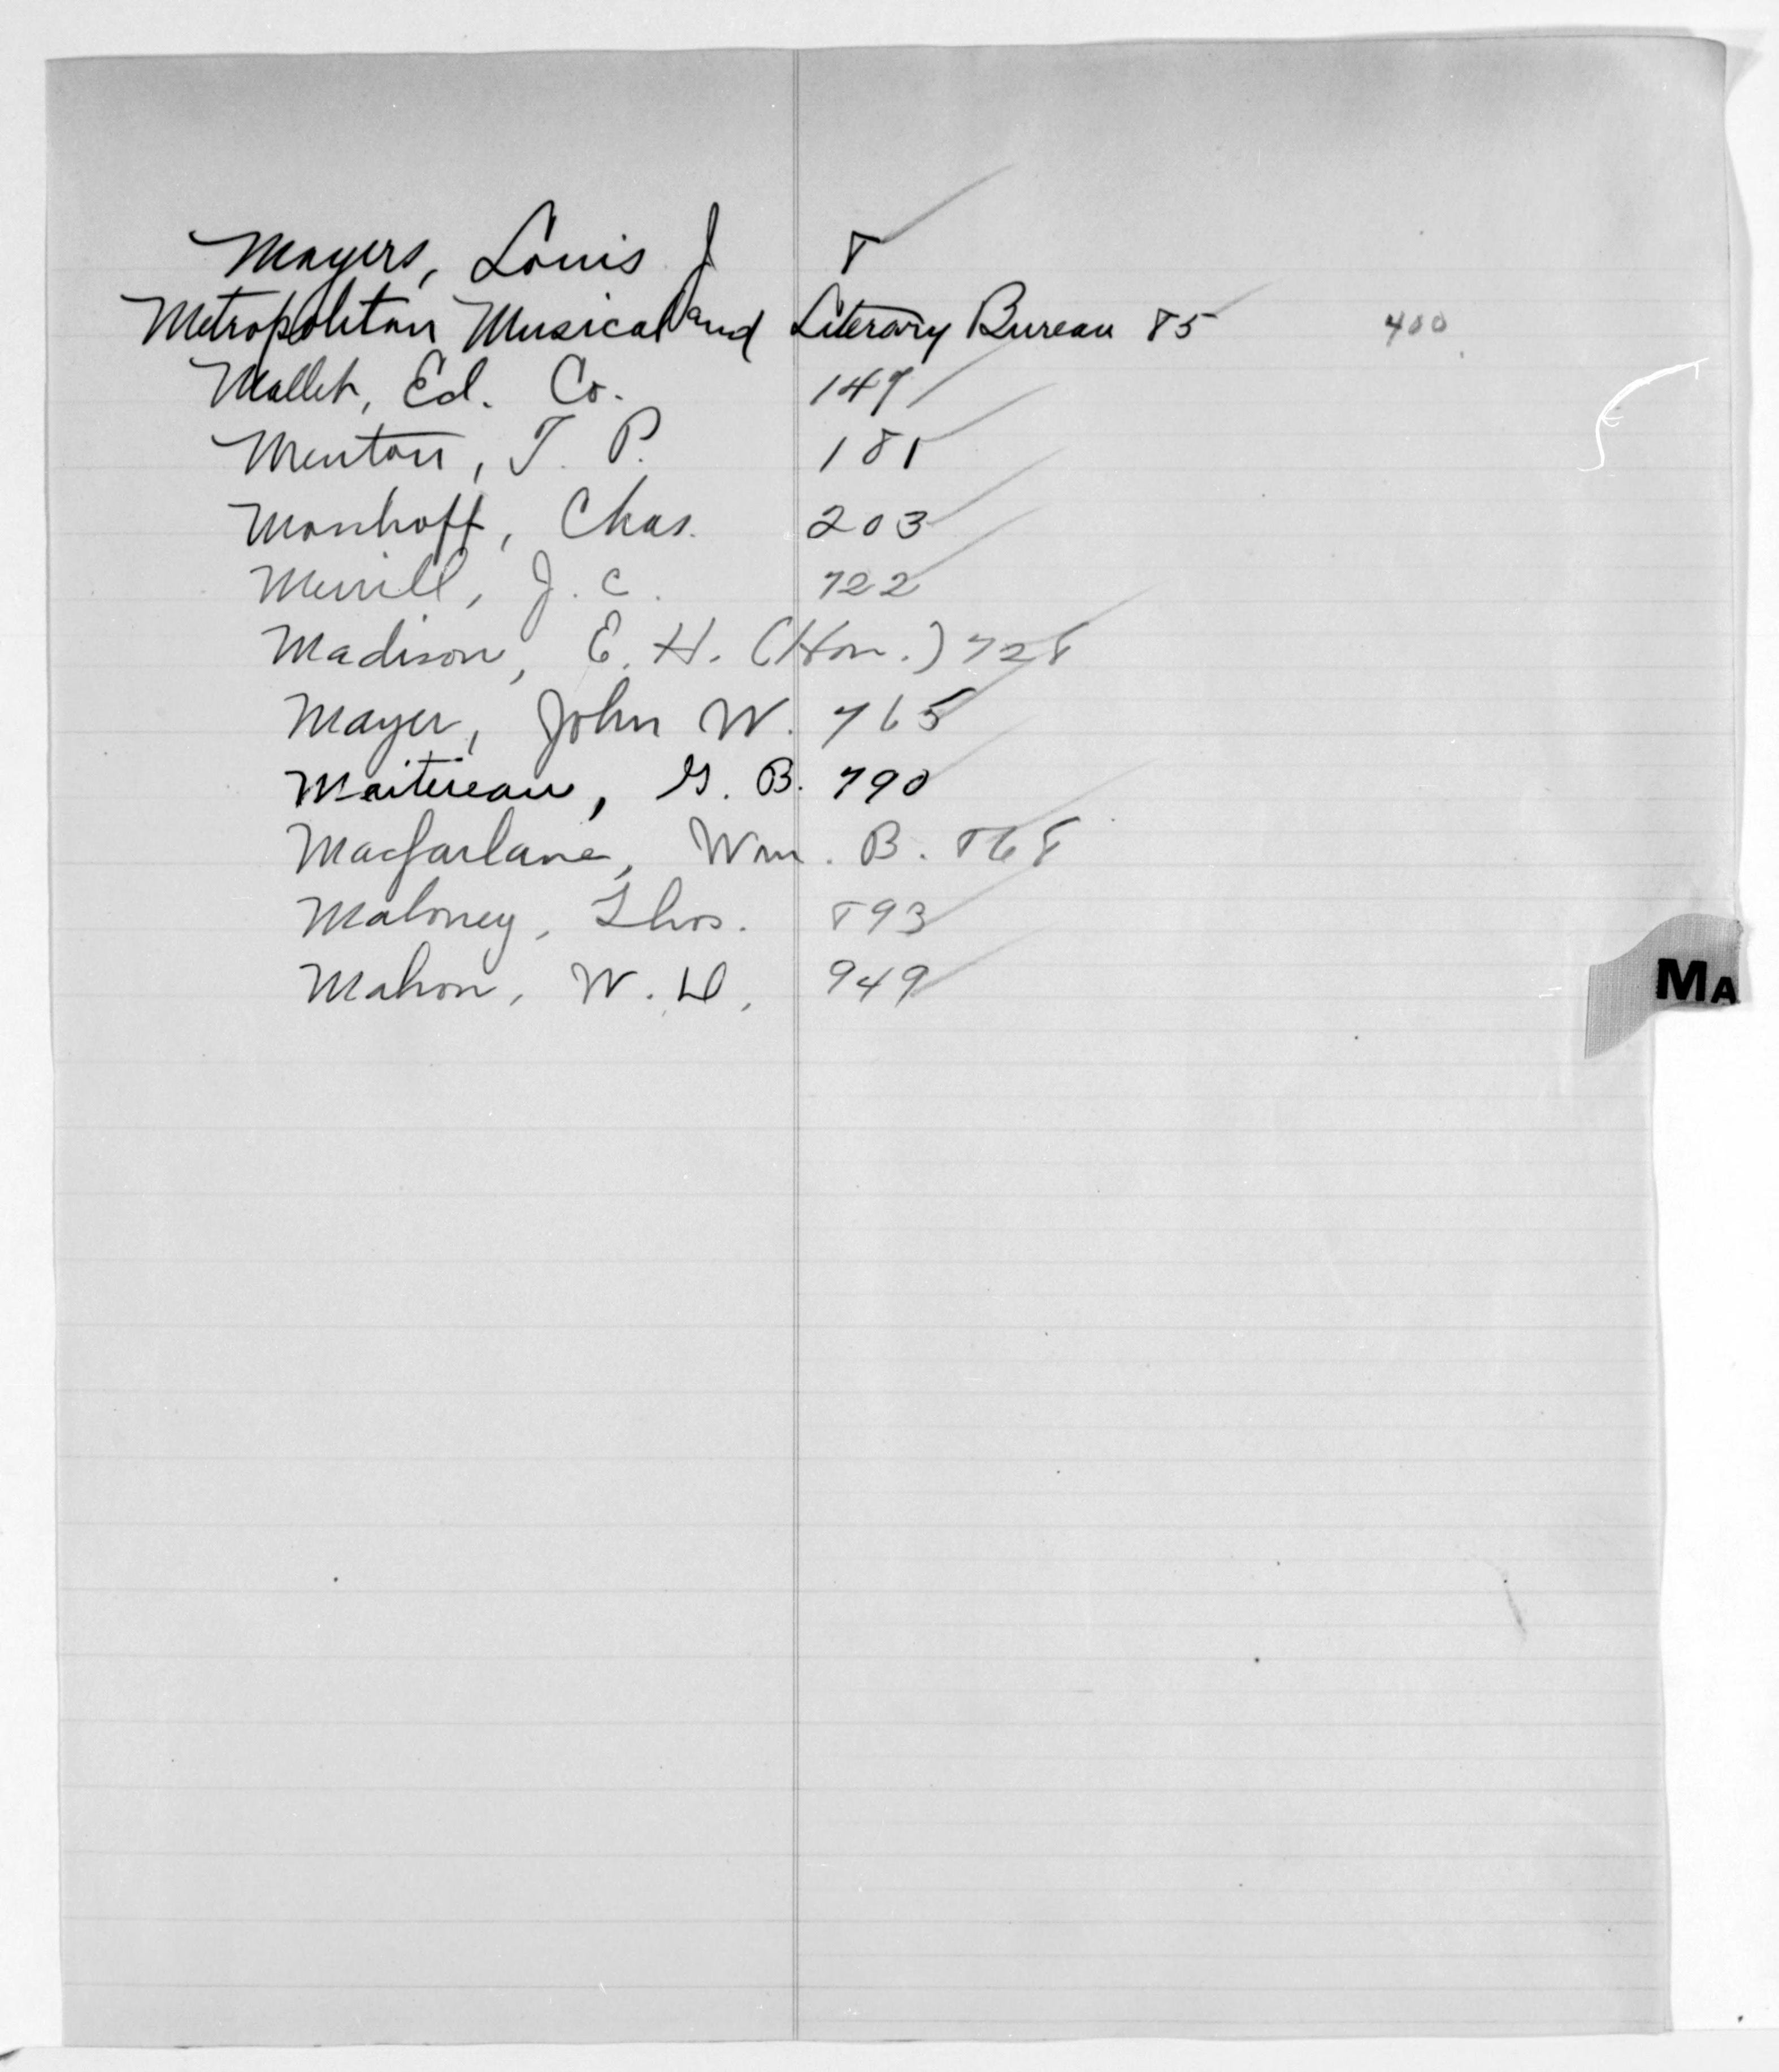 Mayers, Louis J 8
Metropolitan Musical and Literary Bureau 85 400
Mallet, Ed. Co. 147
Menton, T. P. 181
Monhoff, Chas. 203
Merrill, J. C. 722
Madison, E. H. (Hon.) 728
Mayer, John W. 765
G. B. 790
Macfarlane, Wm. B. 868
Maloney, Thos. 893
Mahon, W. D. 949
MA